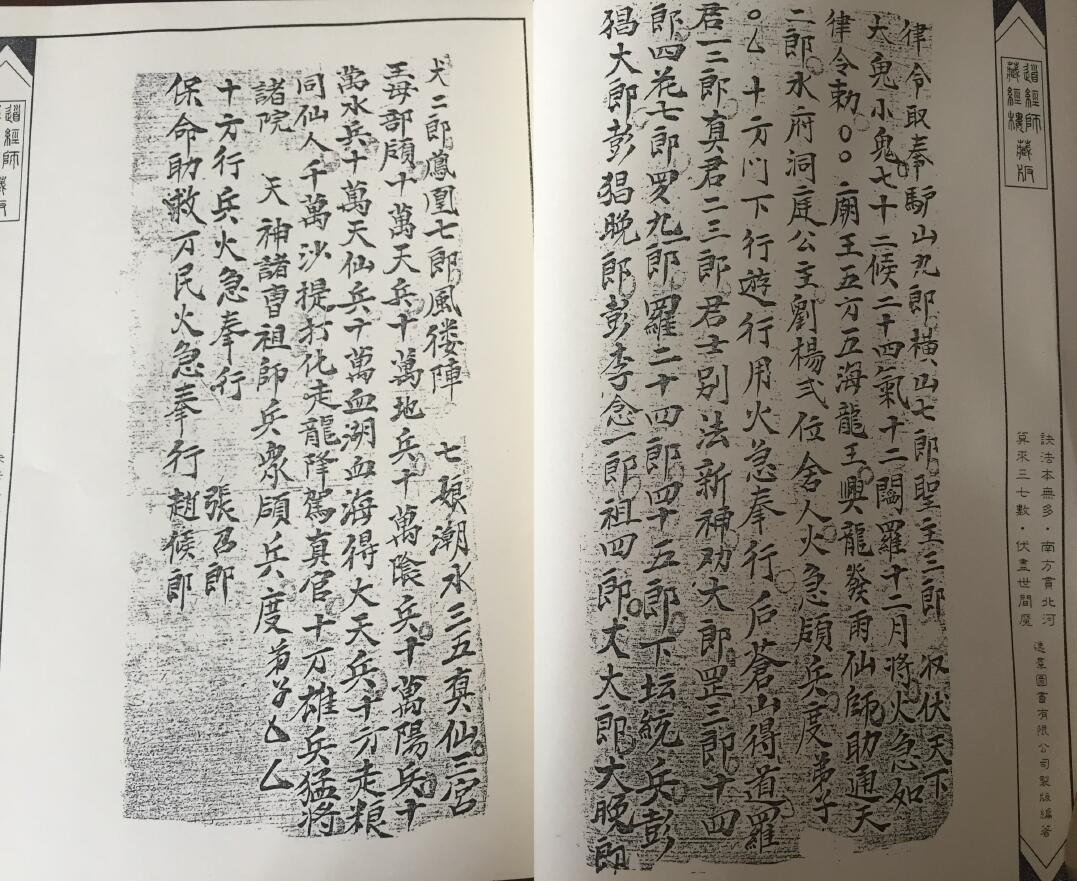 道經師藏版
藏經樓
訣法本無多·南方貫北河
算來三七數·伏盡世間魔
逸羣圖書有限公司製版編著
律令取奉驴山九郎橫山七郎聖主三郎 收伏天下
大鬼小鬼七十二候二十四氣十二闔羅十二月將火急如
律令勅○○廟王五方五海龍王興龍發雨仙師助通天
二郎水府洞庭公主劉楊弍位舍人火急頋兵度弟子
○厶十方门下行遊行用火急奉行后蒼山得道羅
君一三郎真君二三郎君士别法新神刃大郎罡三郎十四
郎四花七郎罗九郎羅二十四郎四十五郎下坛統兵彭
猖大郎彭猖晚郎彭李念一郎祖四郎犬大郎大晚郎
犬二郎鳳凰七郎風偻陣 七娘潮水三五真仙三宫
王母部頋十萬天兵十萬地兵十萬陰兵十萬陽兵十
萬水兵十萬天仙兵十萬血湖血海得大天兵千万走粮
同仙人千萬沙提打化走龍降駕真官十万雄兵猛將
諸院 天神諸曹祖師兵衆頋兵度弟子厶厶
十方行兵火急奉行 張五郎
保命助救万民火急奉行 趙候郎
道經師藏版